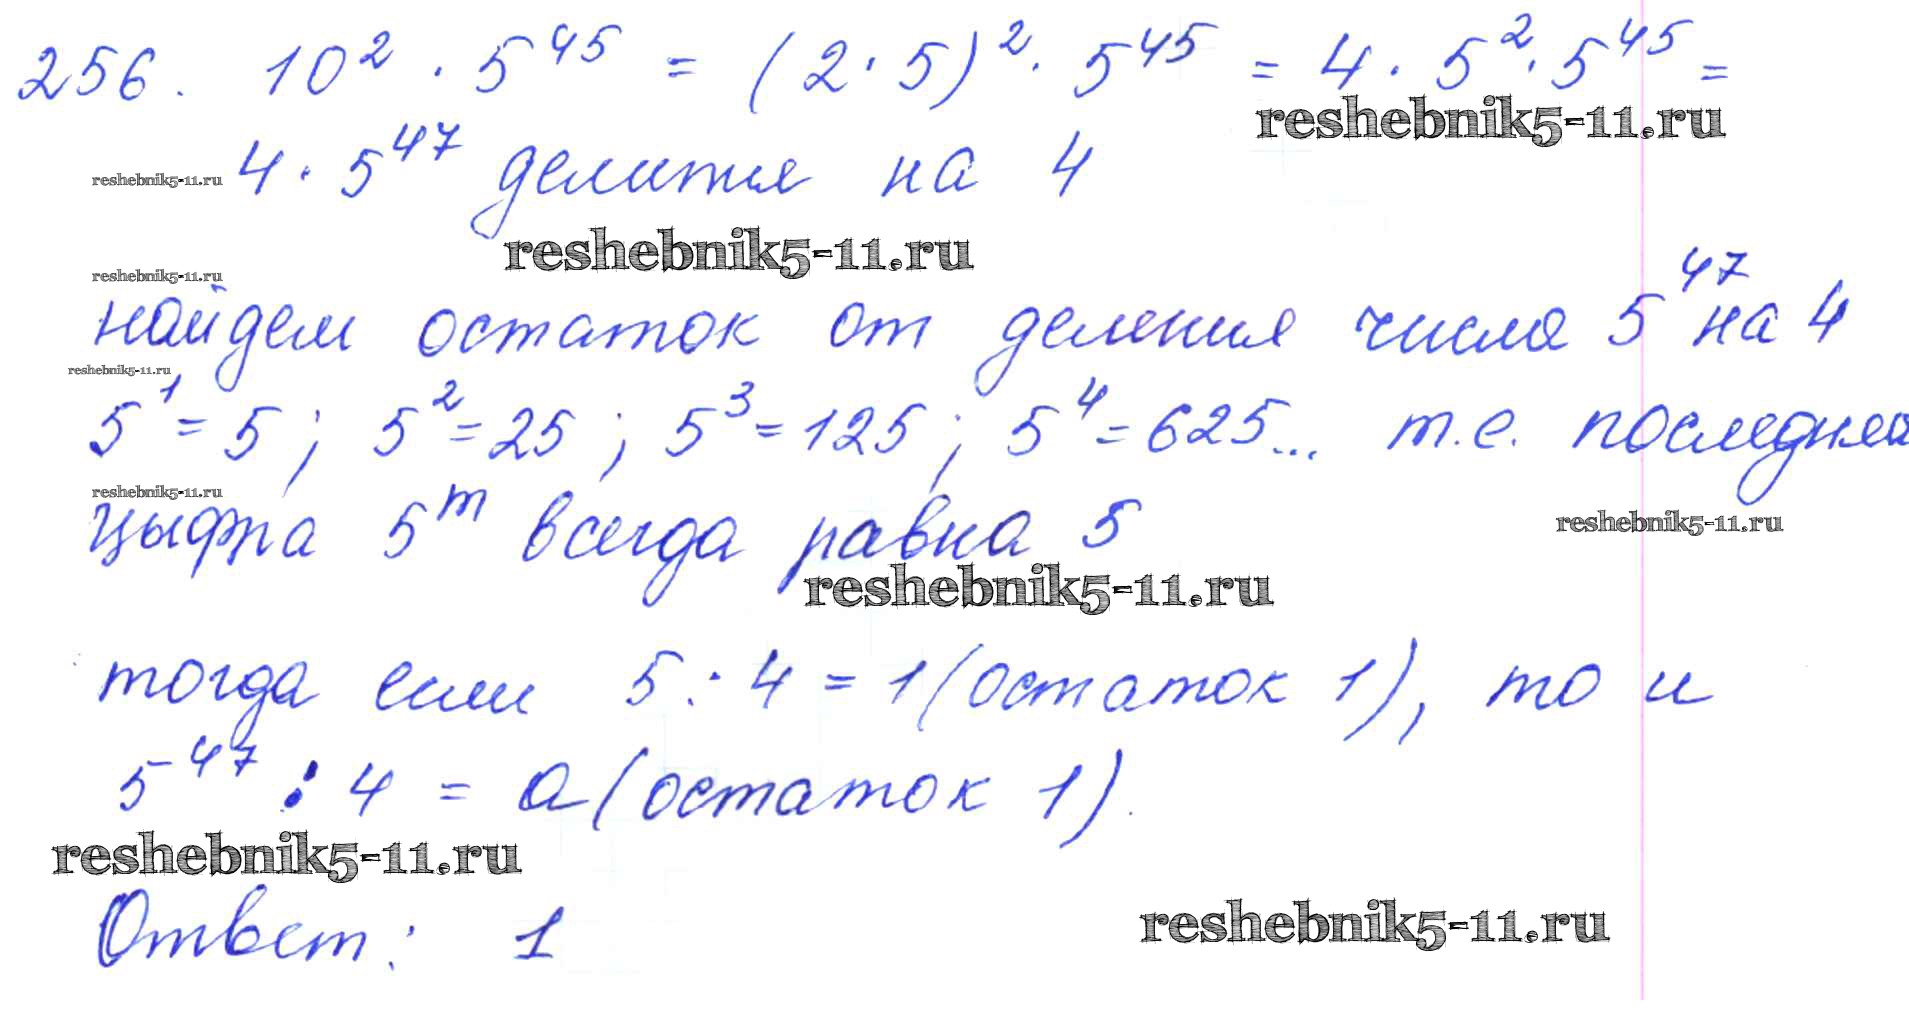 256. 10² · 5⁴⁵ = (2 · 5)² · 5⁴⁵ = 4 · 5² · 5⁴⁵ =
reshebnik5-11.ru
4 · 5⁴⁷ делится на 4
reshebnik5-11.ru
reshebnik5-11.ru
reshebnik5-11.ru
найдем остаток от деления числа 5⁴⁷ на 4
reshebnik5-11.ru
5¹ = 5; 5² = 25; 5³ = 125; 5⁴ = 625... т.е. последняя
reshebnik5-11.ru
цыфра 5ᵐ всегда равна 5
reshebnik5-11.ru
reshebnik5-11.ru
тогда если 5 : 4 = 1 (остаток 1), то и
5⁴⁷ : 4 = a (остаток 1).
reshebnik5-11.ru
Ответ: 1
reshebnik5-11.ru